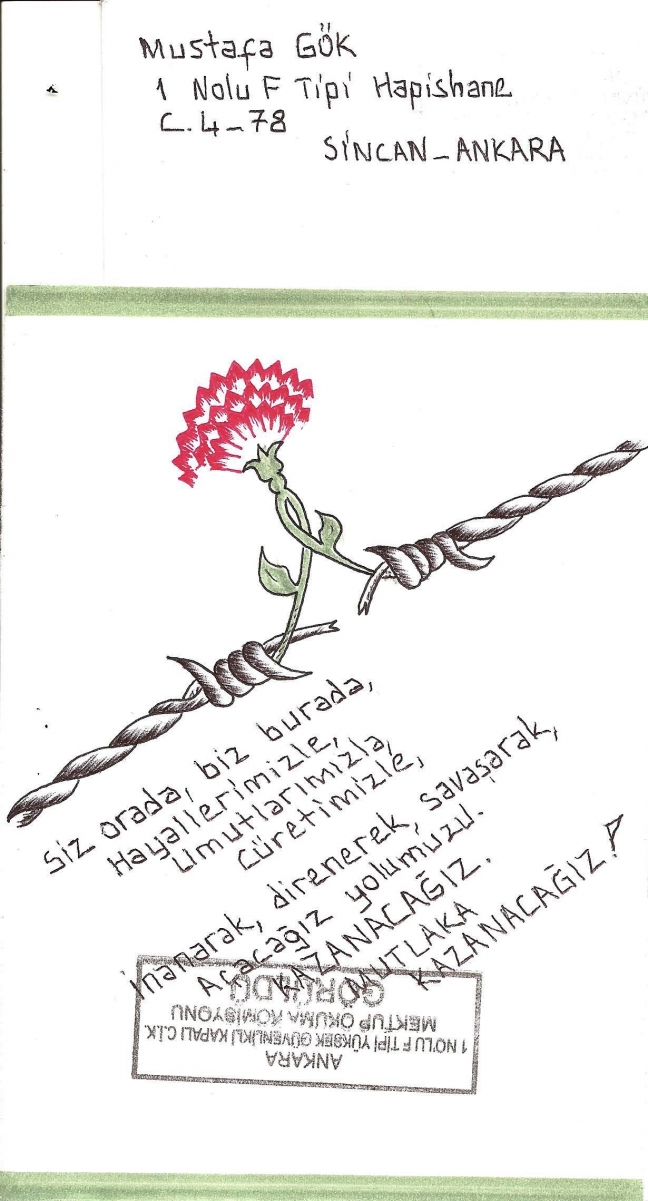 Mustafa GÖK
1 Nolu F Tipi Hapishane
C.4-78
SİNCAN-ANKARA
Siz orada, biz burada,
Hayallerimizle,
Umutlarımızla,
Cüretimizle,
İnanarak, direnerek, savaşarak,
Açacağız yolumuzu.
KAZANACAĞIZ.
MUTLAKA
KAZANACAĞIZ!
ANKARA
1 NO'LU F TİPİ YÜKSEK GÜVENLİKLİ KAPALI C.İ.K.
MEKTUP OKUMA KOMİSYONU
GÖRÜLDÜ